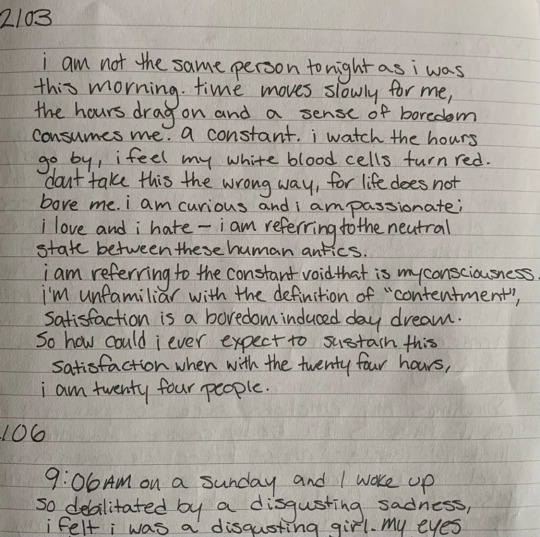 2/03
i am not the same person tonight as i was
this morning. time moves slowly for me,
the hours drag on and a sense of boredom
consumes me. a constant. i watch the hours
go by, i feel my white blood cells turn red.
dont take this the wrong way, for life does not
bore me. i am curious and i am passionate;
i love and i hate – i am referring to the neutral
state between these human antics.
i am referring to the constant void that is my consciousness.
i'm unfamiliar with the definition of "contentment",
satisfaction is a boredom induced day dream.
So how could i ever expect to sustain this
satisfaction when with the twenty four hours,
i am twenty four people.
106
9:06AM on a sunday and I woke up
so debilitated by a disgusting sadness,
i felt i was a disgusting girl. my eyes